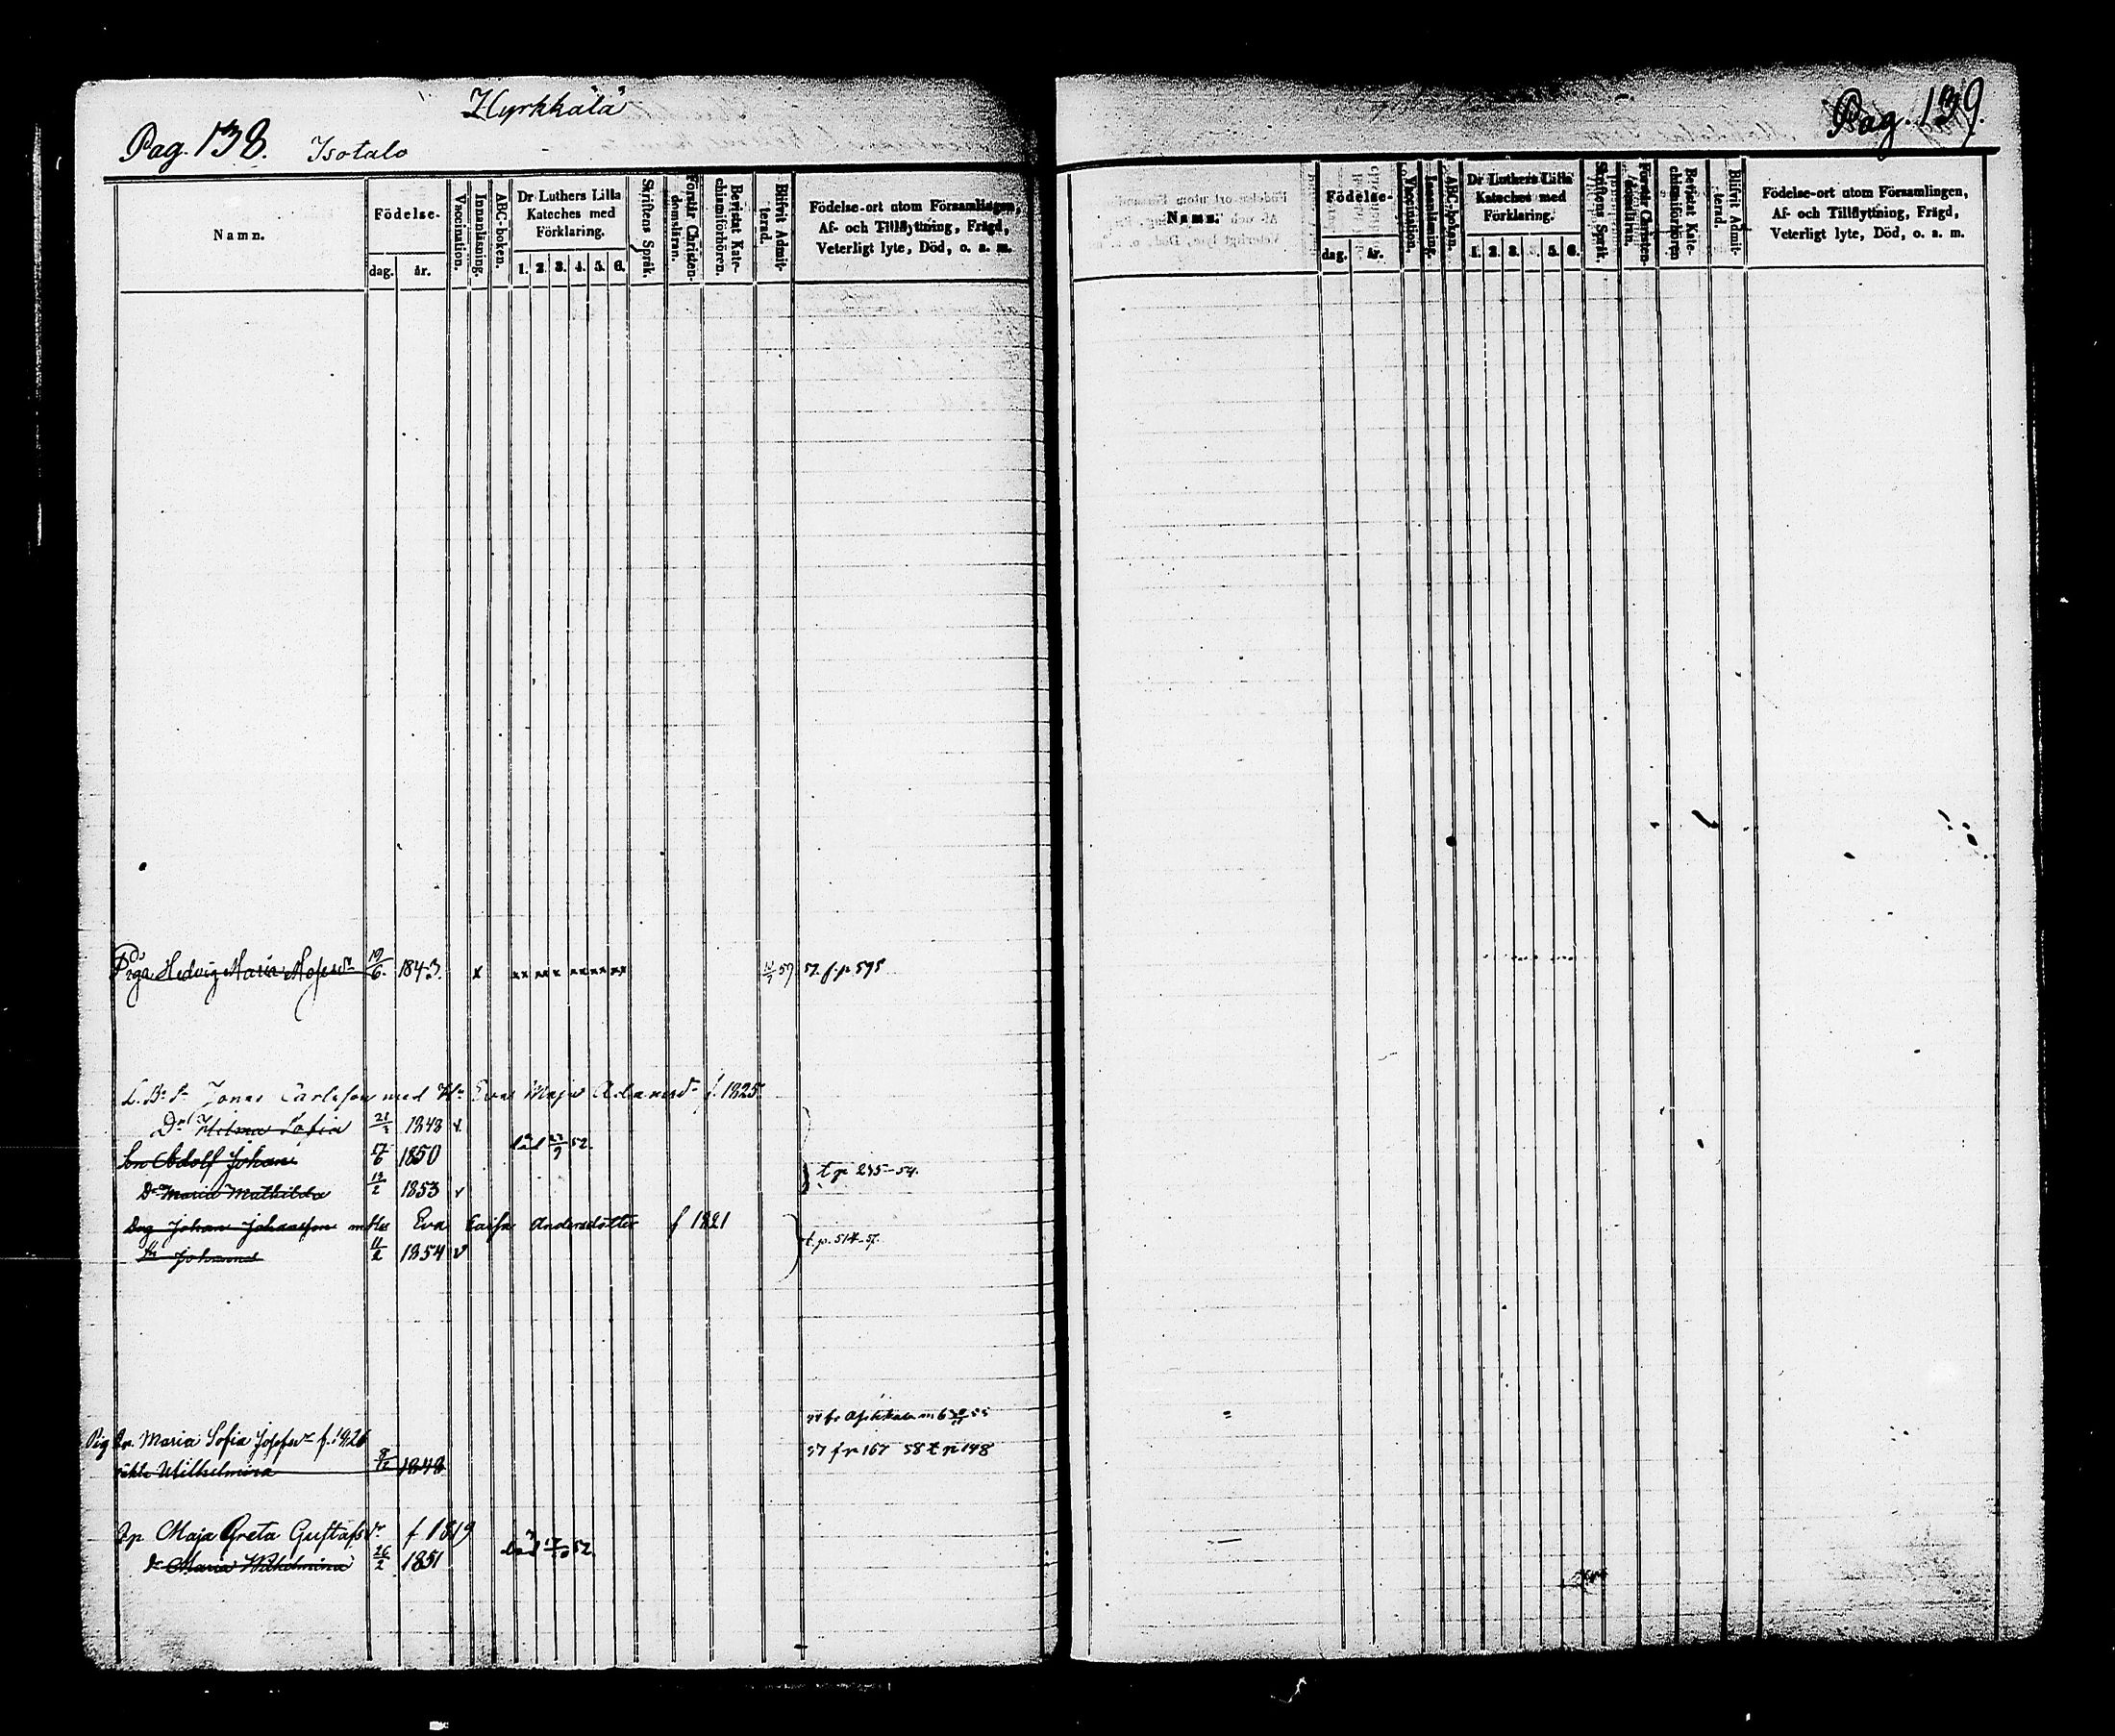 Hyrkkälä
Pag. 138. Isotalo
Namn.
Födelse-
dag. år.
Vaccination.
Innanläsning.
ABC-boken.
Dr Luthers Lilla
Kateches med
Förklaring.
1. 2. 3. 4. 5. 6.
Skriftens Språk.
Förstår Christen-
domsläran.
Bevistat Kate-
chismiförhören.
Blifvit Admit-
terad.
Födelse-ort utom Församlingen,
Af- och Tillflyttning, Frägd,
Veterligt lyte, Död, o. a. m.
Hedvig Maria 10/6. 1843. x xx xx x xx xx xx 57 57. f. p 595
Jonas Carlsson med Eva Maja Adamsdr f. 1825.
Dr Wilma Sofia 21/2 1848 v.
Son Adolf Johan 1850 död 52.
Dr Maria Mathilda 1853 v
} t p 235-54.
Drg Johan Johansson m Hu Eva Caisa Andersdotter f 1821
Sn Johannes 11/2 1854 v
t. p. 514-57.
55
Pig Maria Sofia Josefsdr f. 1826
57 f p 167 58 t p 148
Wilhelmina 1848
Maja Greta Gustafsdr f 1819
Dr Maria Wilhelmina 26/2 1851 död 52.
Pag. 139.
Namn.
Födelse-
dag. år.
Vaccination.
Innanläsning.
ABC-boken.
Dr Luthers Lilla
Kateches med
Förklaring.
1. 2. 3. 5. 6.
Skriftens Språk.
Förstår Christen-
domsläran.
Bevistat Kate-
chismiförhören
Blifvit Admit-
terad.
Födelse-ort utom Församlingen,
Af- och Tillflyttning, Frägd,
Veterligt lyte, Död, o. a. m.